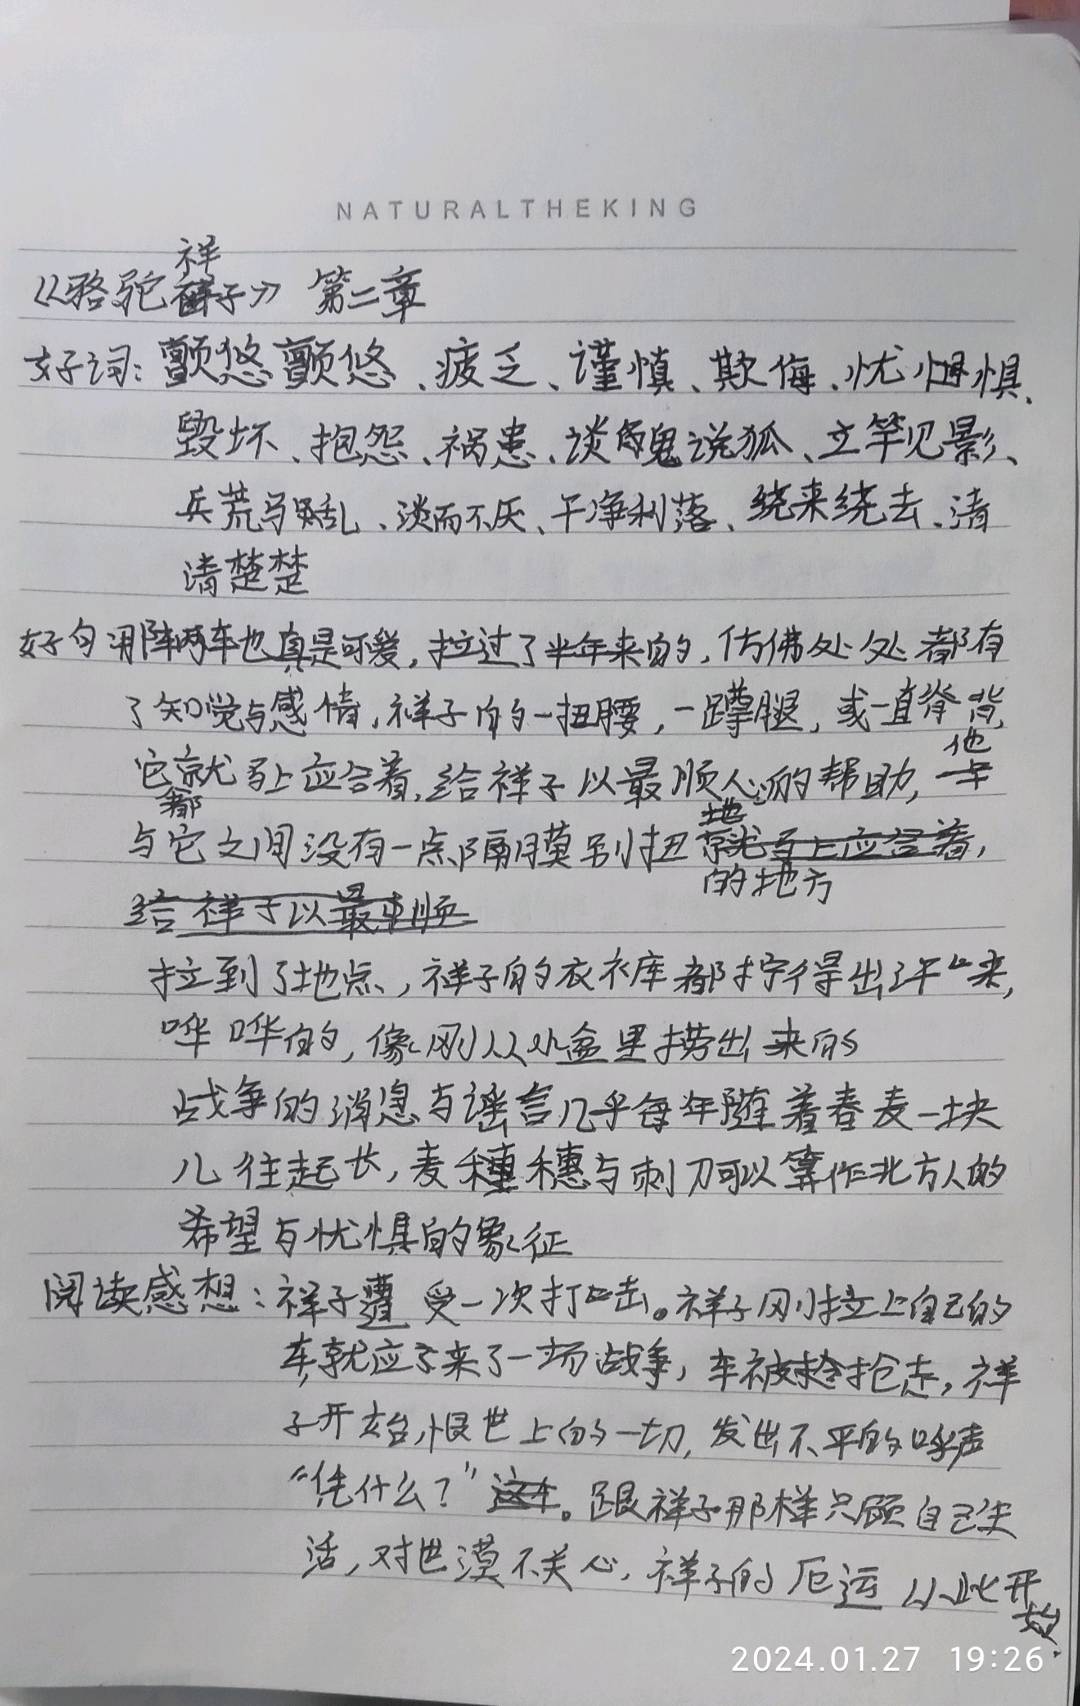 NATURALTHEKING
祥
《骆驼祥子》 第二章
好词：颤悠颤悠、疲乏、谨慎、欺侮、忧惧、
毁坏、抱怨、祸患、谈鬼说狐、立竿见影、
兵荒马乱、淡而不厌、干净利落、绕来绕去、清
清楚楚
好句 那辆车也真是可爱，拉过了半年来的，仿佛处处都有
了知觉与感情，祥子的一扭腰，一蹲腿，或一直脊背，
它就马上应合着，给祥子以最顺心的帮助，他
与它之间没有一点隔膜别扭
都
地
就马上应合着，
的地方
给祥子以最顺
拉到了地点，祥子的衣裤都拧得出汗来，
哗哗的，像刚从水盆里捞出来的
战争的消息与谣言几乎每年随着春麦一块
儿往起长，麦穗与刺刀可以算作北方人的
希望与忧惧的象征
阅读感想：祥子遭受一次打击。祥子刚拉上自己的
车，就应来了一场战争，车被抢走，祥
子开始恨世上的一切，发出不平的呼声
“凭什么？”这个。跟祥子那样只顾自己生
活，对世漠不关心，祥子的厄运从此开
始.
2024.01.27 19:26